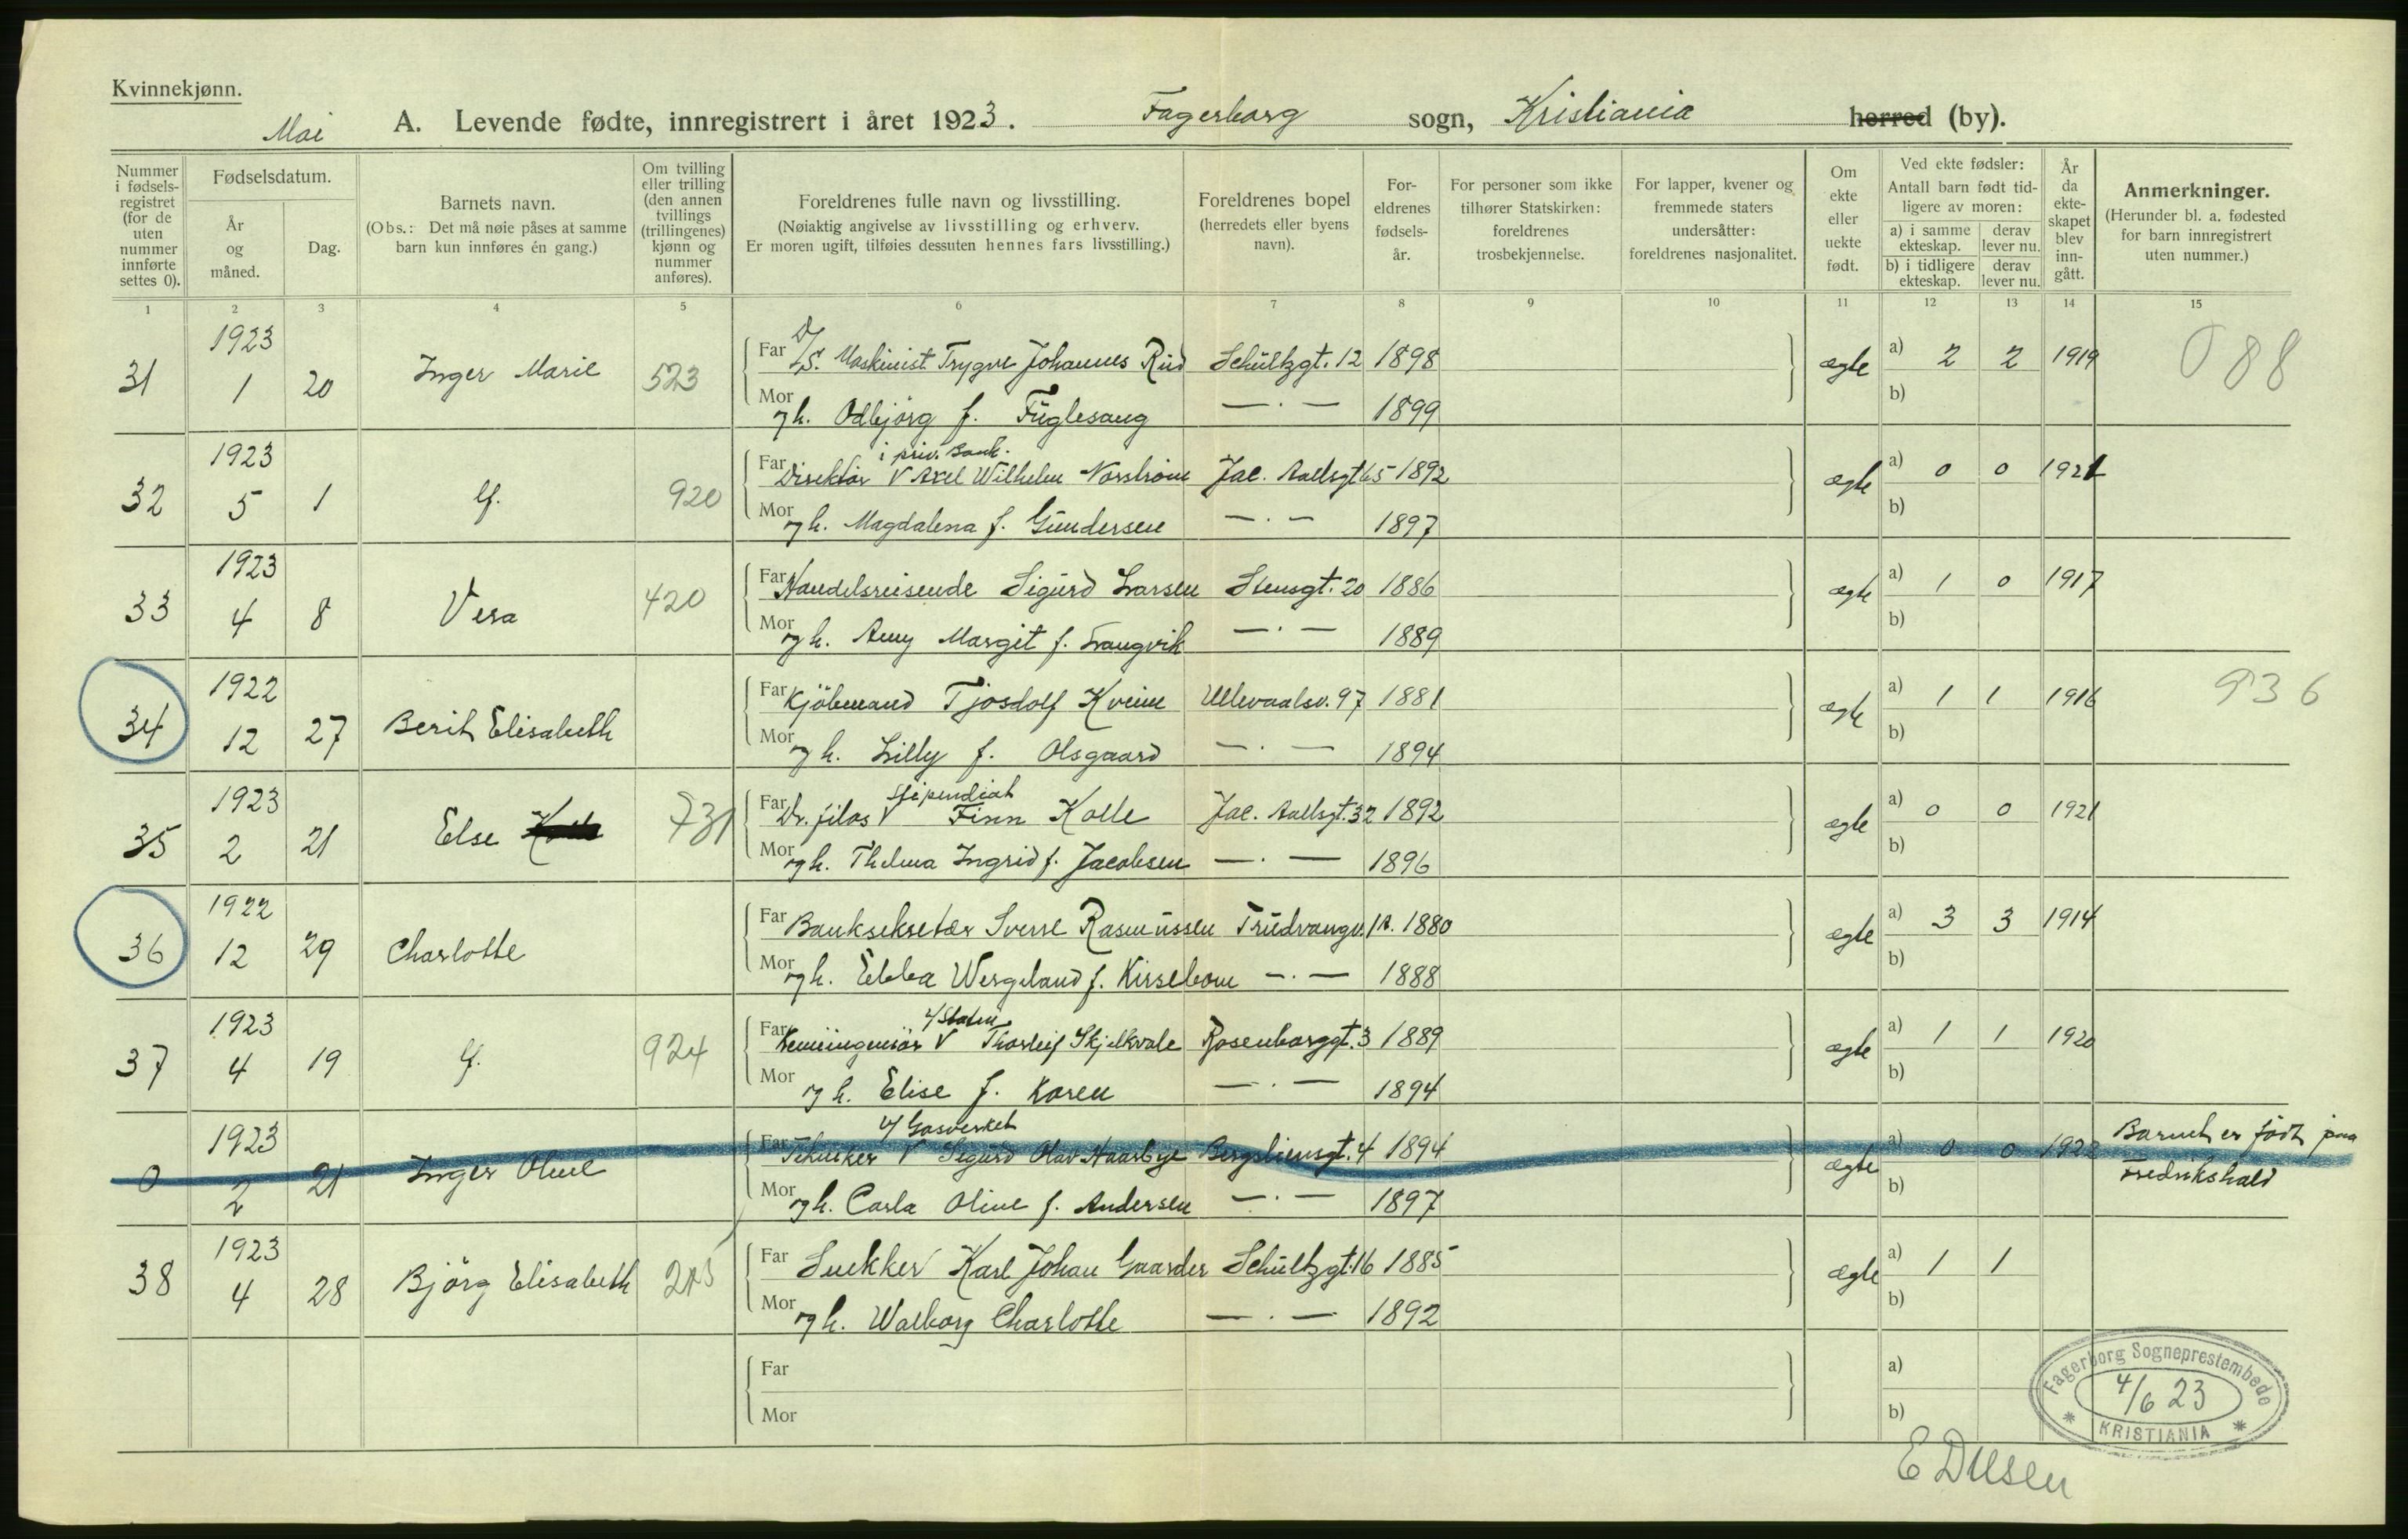 Kvinnekjønn.
Mai A. Levende fødte, innregistrert i året 1923. Fagerborg sogn, Kristiania herred (by).
Nummer i fødsels-registret (for de uten nummer innførte settes 0).
Fødselsdatum.
År og måned.
Dag.
Barnets navn.
(Obs.: Det må nøie påses at samme barn kun innføres én gang.)
Om tvilling eller trilling (den annen tvillings (trillingenes) kjønn og nummer anføres).
Foreldrenes fulle navn og livsstilling.
(Nøiaktig angivelse av livsstilling og erhverv.
Er moren ugift, tilføies dessuten hennes fars livsstilling.)
Foreldrenes bopel
(herredets eller byens navn).
For-eldrenes fødsels-år.
For personer som ikke tilhører Statskirken: foreldrenes trosbekjennelse.
For lapper, kvener og fremmede staters undersåtter: foreldrenes nasjonalitet.
Om ekte eller uekte født.
Ved ekte fødsler:
Antall barn født tid-ligere av moren:
a) i samme ekteskap.
derav lever nu.
b) i tidligere ekteskap.
derav lever nu.
År da ekte-skapet blev inn-gått.
Anmerkninger.
(Herunder bl. a. fødested for barn innregistrert uten nummer.)
1 2 3 4 5 6 7 8 9 10 11 12 13 14 15
31 1923 1 20 Inger Marie 523 Far D/S. Maskinist Trygve Johannes Rud Schultzgt. 12 1898 ægte a) 2 2 1919 088
Mor og h. Odbjörg f. Fuglesang —·— 1899 b)
32 1923 5 1 lf. 920 Far Direktör V i priv. bank. Axel Wilhelm Norström Jac. Aallsgt 65 1892 ægte a) 0 0 1921
Mor og h. Magdalena f. Gundersen —·— 1897 b)
33 1923 4 8 Vera 420 Far Handelsreisende Sigurd Larsen Stensgt. 20 1886 ægte a) 1 0 1917
Mor og h. Amy Margit f. Langvik —·— 1889 b)
34 1922 12 27 Berit Elisabeth Far Kjöbmand Tjosdolf Kveim Ullevaalsv. 97 1881 ægte a) 1 1 1916 936
Mor og h. Lilly f. Olsgaard —·— 1894 b)
35 1923 2 21 Else 731 Far Dr. filos V stipendiat Finn Kolle Jac. Aallsgt. 32 1892 ægte a) 0 0 1921
Mor og h. Thelma Ingrid f. Jacobsen —·— 1896 b)
36 1922 12 29 Charlotte Far Banksekretær Sverre Rasmussen Trudvangv. 1880 ægte a) 3 3 1914
Mor og h. Ebba Wergeland f. Kissebom —·— 1888 b)
37 1923 4 19 lf. 924 Far Kemiingeniör V v/Staten Thorleif Skjelkvale Rosenborggt. 3 1889 ægte a) 1 1 1920
Mor og h. Elise f. Koren —·— 1894 b)
0 1923 2 21 Inger Oline Far Tekniker V v/Gasverket Sigurd Olav Haarbye Bergsliensgt. 4 1894 ægte a) 0 0 1922 Barnet er födt paa Fredrikshald
Mor og h. Carla Oline f. Andersen —·— 1897 b)
38 1923 4 28 Björg Elisabeth Far Snekker Karl Johan Gaarder Schultzgt. 16 1885 ægte a) 1 1
Mor og h. Walborg Charlotte —·— 1892 b)
Far a)
Mor b)
Fagerborg Sogneprestembede
4/6 23
KRISTIANIA